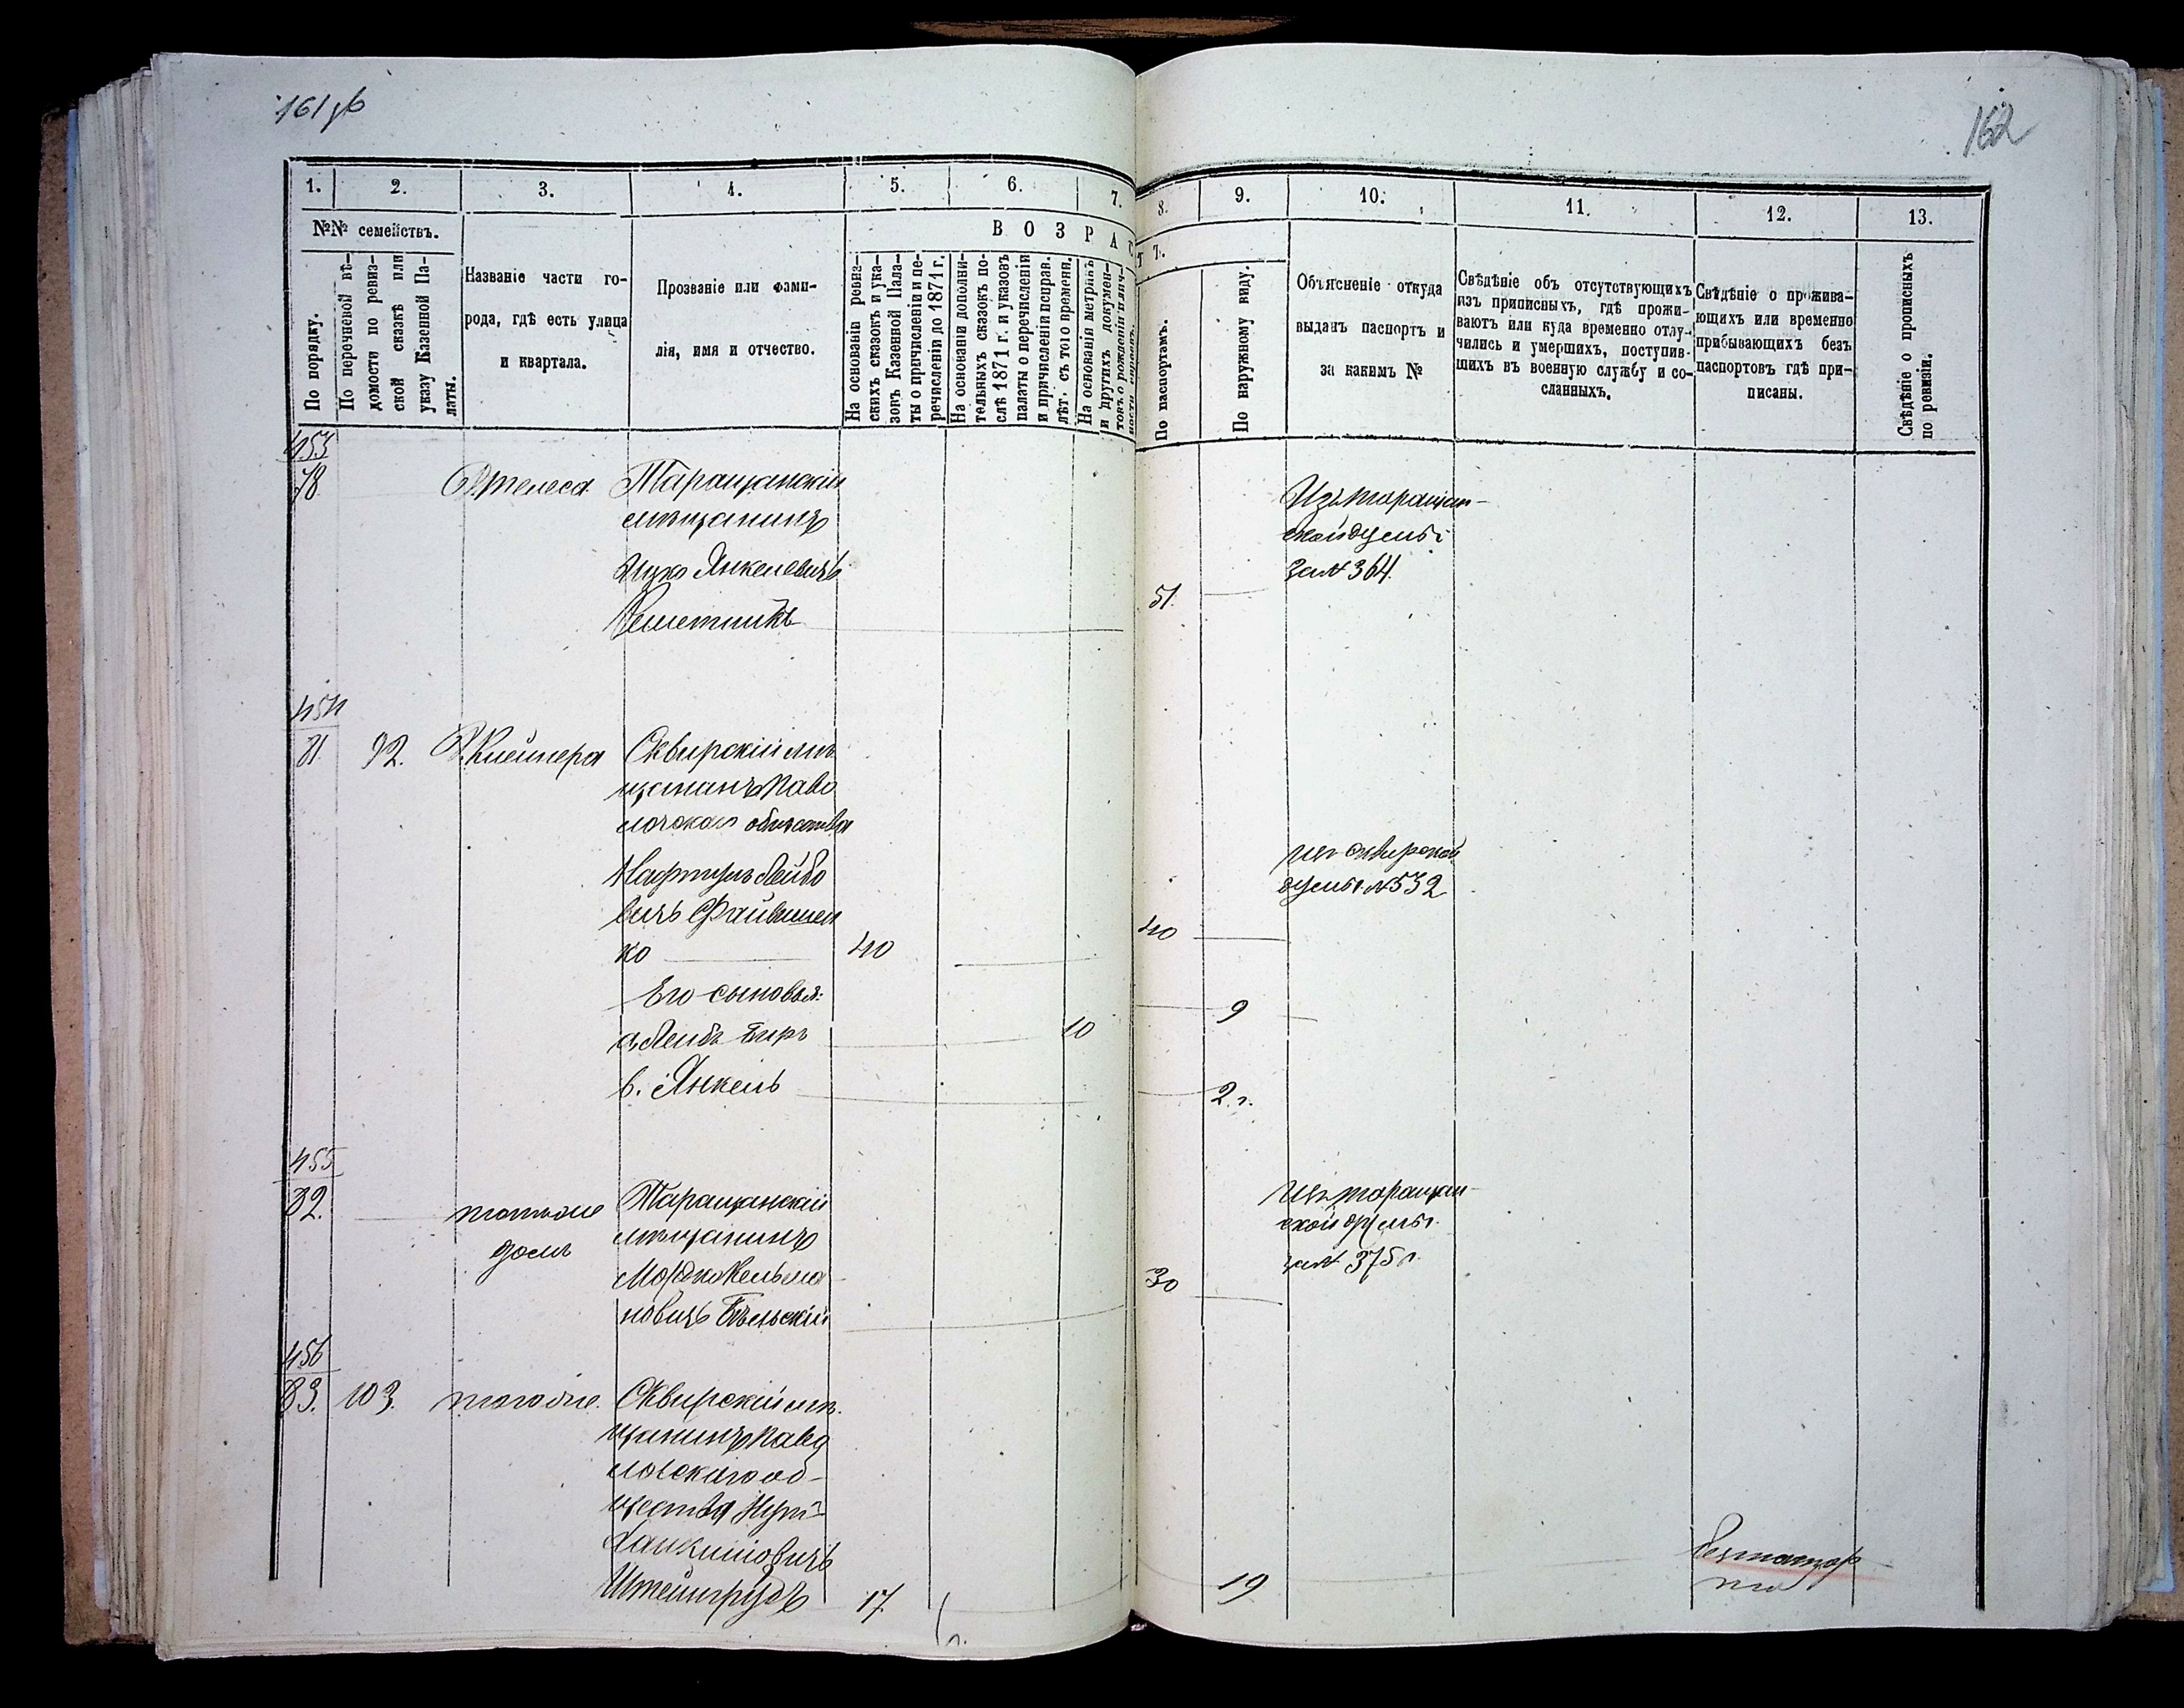 161 об
162
1.
2.
3.
4.
5.
6.
7.
8.
9.
10.
11.
12.
13.
№№ семействъ.
ВОЗРАСТ
По порядку.
По перечневой вѣ-
домости по ревиз-
ской сказкѣ или
указу Казенной Па-
латы.
Названіе части го-
рода, гдѣ есть улица
и квартала.
Прозваніе или фами-
лія, имя и отчество.
На основаніи ревиз-
скихъ сказокъ и ука-
зовъ Казенной Пала-
ты о причисленіи и пе-
речисленіи до 1871 г.
На основаніи дополни-
тельныхъ сказокъ по-
слѣ 1871 г. и указовъ
палаты о перечисленіи
и причисленіи исправ.
лѣт. съ того времени.
На основаніи метрикъ
и другихъ докумен-
товъ о рожденіи и лич-
ности евреевъ.
По паспортамъ.
По наружному виду.
Объясненіе откуда
выданъ паспортъ и
за какимъ №
Свѣдѣніе объ отсутствующихъ
изъ приписныхъ, гдѣ прожи-
ваютъ или куда временно отлу-
чились и умершихъ, поступив-
шихъ въ военную службу и со-
сланныхъ.
Свѣдѣніе о прожива-
ющихъ или временно
прибывающихъ безъ
паспортовъ гдѣ при-
писаны.
Свѣдѣніе о прописныхъ
по ревизіи.
453
78
Таращанскій
мѣщанинъ
Ицко Янкелевичъ
Решетникъ
51.
Изъ таращан-
ской думы
за № 364.
454
81
92.
Сквирскій мѣ
щанинъ Паво
лочскаго общества
Нафтулъ Лейбо
вичъ Файвишен
ко
40
40
изъ сквирской
думы № 532
Его сыновья:
а, Лейбъ Беръ
10
9
в. Янкель
2 г.
455
82.
томъ же
домѣ
Таращанскій
мѣщанинъ
Мордко Кельма
новичъ Бѣльскій
30
изъ таращан-
ской думы
за № 375
456
83.
103.
тоже
Сквирскій мѣ.
щанинъ Паво
лочскаго об-
щества
Штейнгрудъ
17.
19